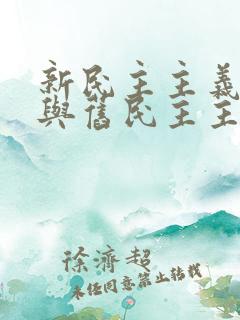 新民主主義
與舊民主主
徐濟超
未经同意禁止转载